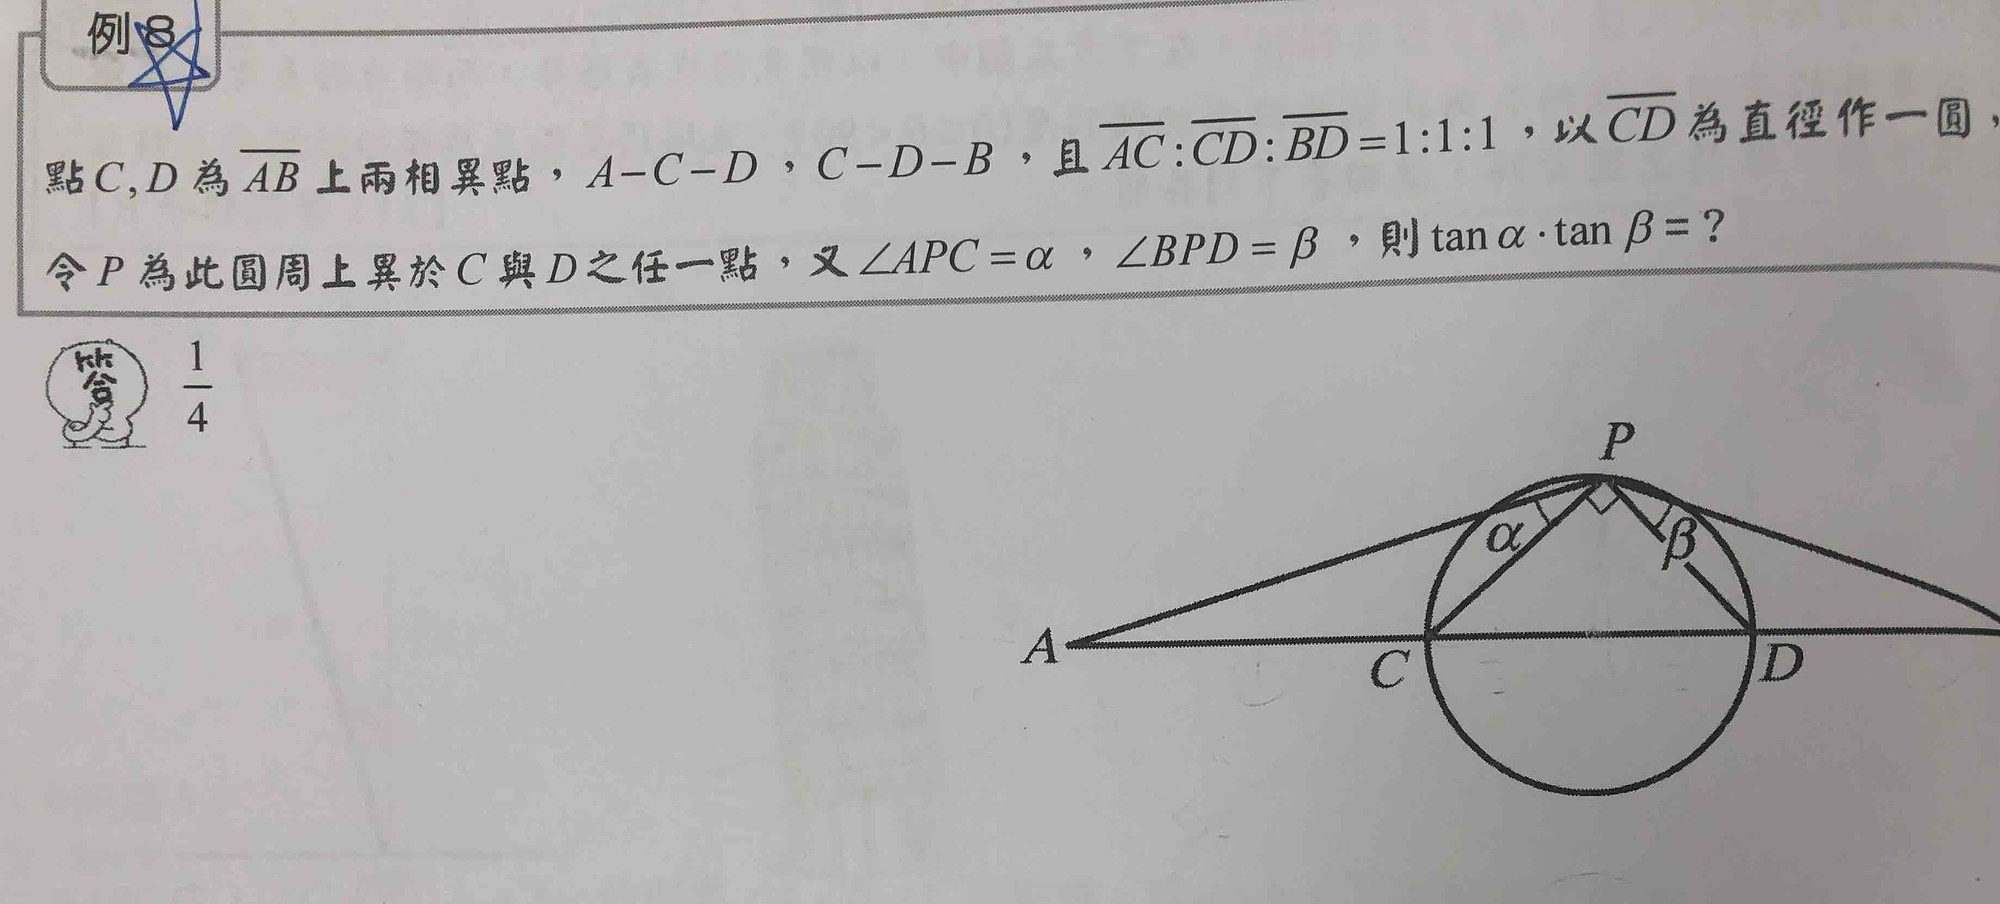 例8
點C,D為$\overline{AB}$上兩相異點，A−C−D，C−D−B，且$\overline{AC}:\overline{CD}:\overline{BD}=1:1:1$，以$\overline{CD}$為直徑作一圓，
令P為此圓周上異於C與D之任一點，又∠APC=α，∠BPD=β，則tan α·tan β=？
答 $\frac{1}{4}$
P
α
β
A
C
D